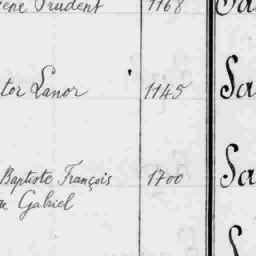 ène Prudent 1168 Sa
tor Lanor 1145 Sa
Baptiste François 1700 Sa
Gabriel
S